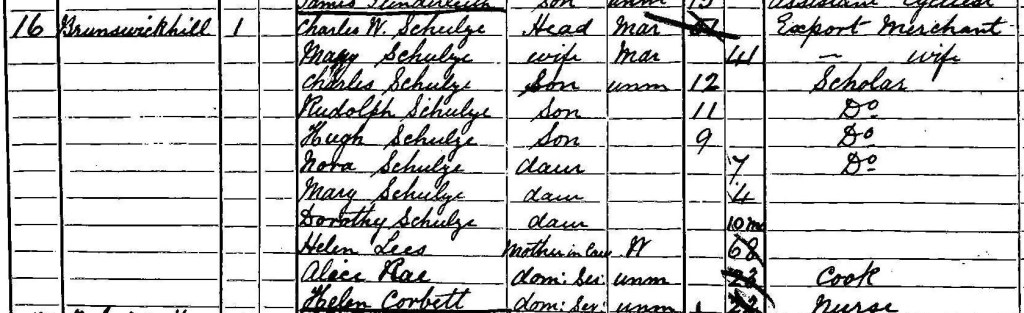 son unm 13 Assistant
16 Brunswickhill 1 Charles W. Schulze Head Mar Export Merchant
Mary Schulze wife Mar 41 — wife
Charles Schulze Son unm 12 Scholar
Rudolph Schulze Son 11 Do
Hugh Schulze Son 9 Do
Nora Schulze daur 7 Do
Mary Schulze daur 4
Dorothy Schulze daur 10 mo
Helen Lees Mother in law W 68
Alice Rae dom: Ser: unm 23 Cook
Helen Corbett dom: Ser: unm 22 Nurse